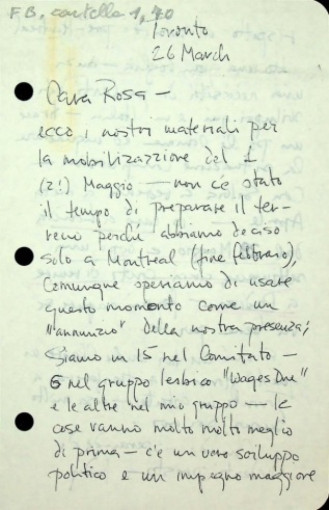 F.B. cartella 1,40
Toronto
26 March
Cara Rosa —
ecco i nostri materiali per
la mobilizzazione del 1
(2!) Maggio — non c'è stato
il tempo di preparare il ter-
reno perché abbiamo deciso
solo a Montreal (fine febbraio),
Comunque speriamo di usare
questo momento come un
"annunzio" della nostra presenza;
Siamo in 15 nel Comitato —
6 nel gruppo lesbico "Wages Due"
e le altre nel mio gruppo — le
cose vanno molto molto meglio
di prima — c'è un vero sviluppo
politico e un impegno maggiore